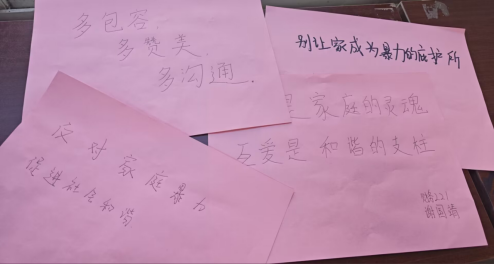 多包容.
多赞美.
多沟通.
别让家成为暴力的庇护所
是家庭的灵魂
互爱是 和谐的支柱
反对家庭暴力
促进社会和谐
221